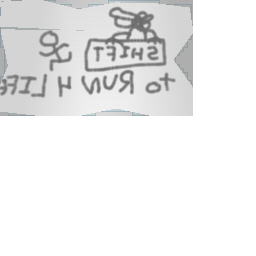 SHIFT
to RUN 4 LIFE